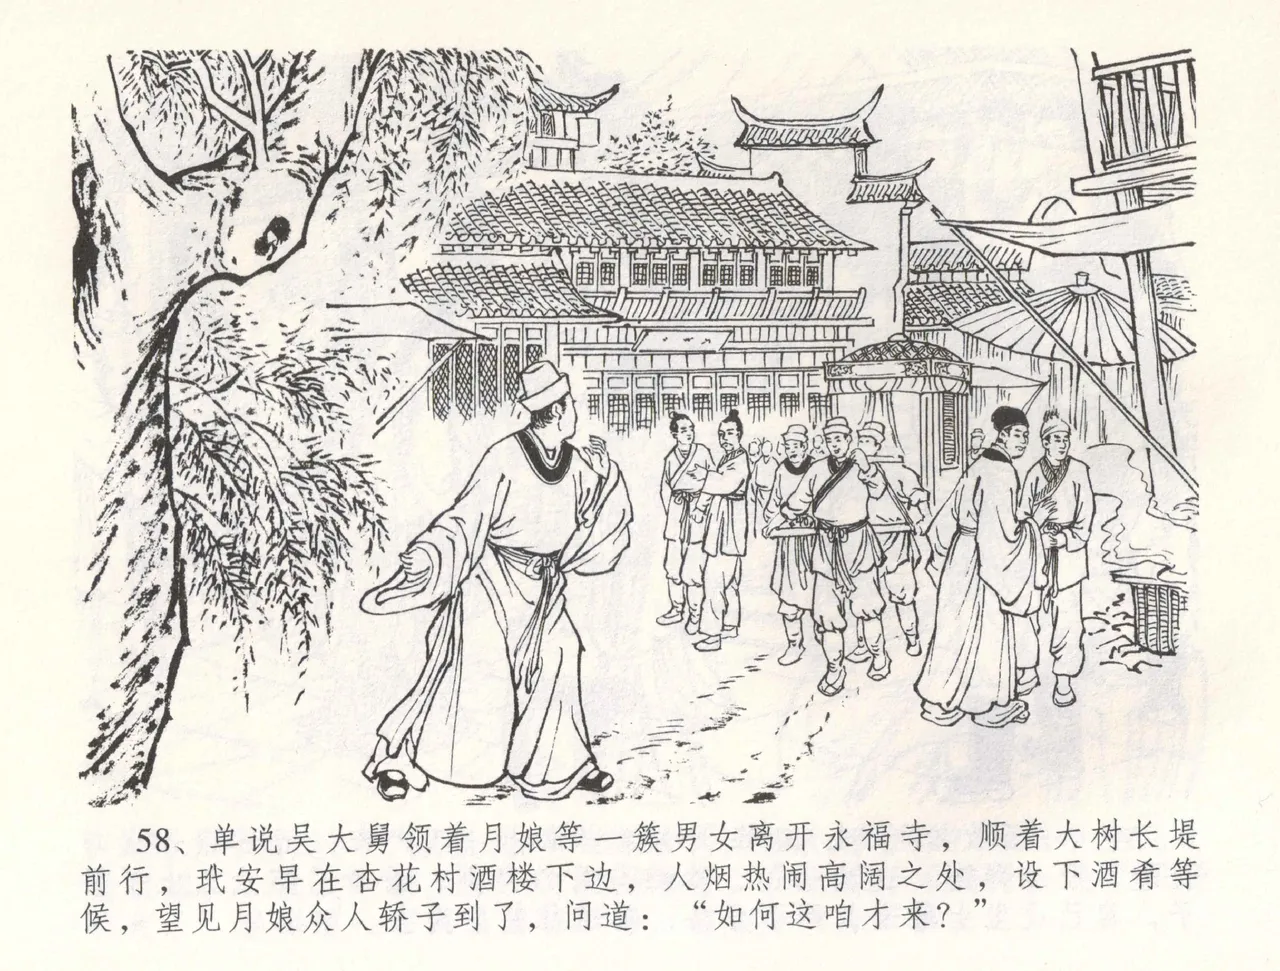 58、单说吴大舅领着月娘等一簇男女离开永福寺，顺着大树长堤
前行，玳安早在杏花村酒楼下边，人烟热闹高阔之处，设下酒肴等
候，望见月娘众人轿子到了，问道：“如何这咱才来？”